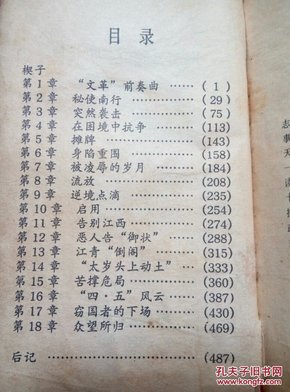 目录
楔子
第1章 “文革”前奏曲 ……(1)
第2章 秘使南行 ……(29)
第3章 突然袭击 ……(75)
第4章 在困境中抗争 ……(113)
第5章 摊牌 ……(143)
第6章 身陷重围 ……(158)
第7章 被凌辱的岁月 ……(184)
第8章 流放 ……(208)
第9章 逆境点滴 ……(235)
第10章 启用 ……(254)
第11章 告别江西 ……(274)
第12章 恶人告“御状” ……(288)
第13章 江青“倒阁” ……(315)
第14章 “太岁头上动土” ……(333)
第15章 苦撑危局 ……(360)
第16章 “四·五”风云 ……(387)
第17章 窃国者的下场 ……(430)
第18章 众望所归 ……(469)
后记 ……(487)
志
天